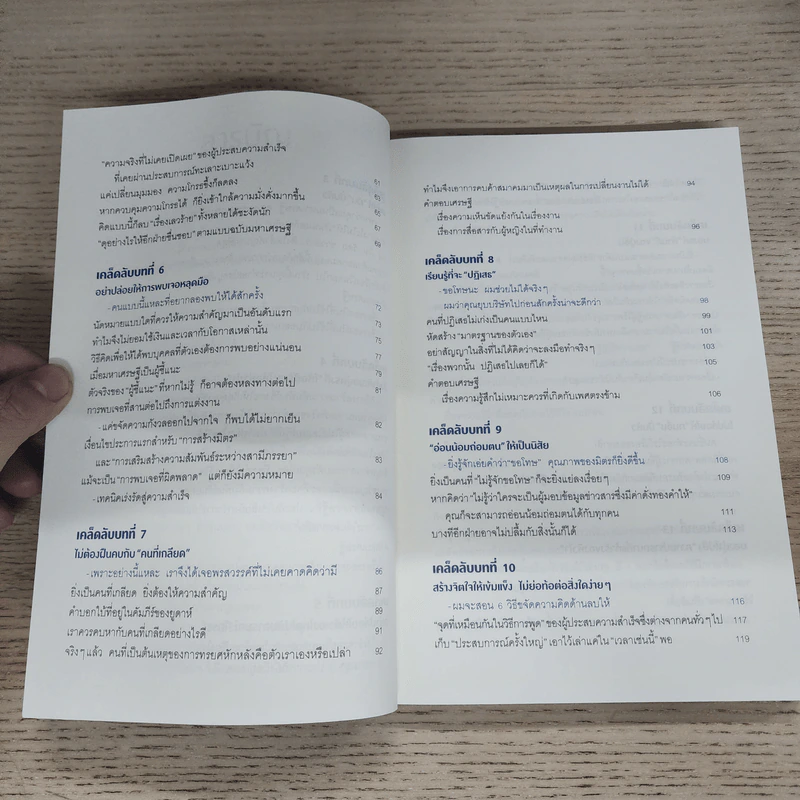 "ความจริงที่ไม่เคยเปิดเผย" ของผู้ประสบความสำเร็จ
ที่เคยผ่านประสบการณ์ทะเลาะเบาะแว้ง 61
แค่เปลี่ยนมุมมอง ความโกรธขึ้งก็ลดลง 63
หากควบคุมความโกรธได้ ก็ยิ่งเข้าใกล้ความมั่งคั่งมากขึ้น 65
คิดแบบนี้ก็ลบ "เรื่องเลวร้าย" ทั้งหลายได้ชะงัดนัก 67
"ดุอย่างไรให้อีกฝ่ายชื่นชอบ" ตามแบบฉบับมหาเศรษฐี 69
เคล็ดลับบทที่ 6
อย่าปล่อยให้การพบเจอหลุดมือ
-คนแบบนี้แหละที่อยากลองพบให้ได้สักครั้ง 72
นัดหมายแบบใดที่ควรให้ความสำคัญมาเป็นอันดับแรก 73
ทำไมจึงไม่ยอมใช้เงินและเวลากับโอกาสเหล่านั้น 75
วิธีคิดเพื่อให้ได้พบบุคคลที่ตัวเองต้องการพบอย่างแน่นอน 77
เมื่อมหาเศรษฐีเป็นผู้ชี้แนะ 79
ตัวจริงของ "ผู้ชี้แนะ" ที่หากไม่รู้ ก็อาจต้องหลงทางต่อไป 81
การพบเจอที่สานต่อไปถึงการแต่งงาน
-แค่ขจัดความกังวลออกไปจากใจ ก็พบได้ไม่ยากเย็น 82
เงื่อนไขประการแรกสำหรับ "การสร้างมิตร"
และ "การเสริมสร้างความสัมพันธ์ระหว่างสามีภรรยา" 83
แม้จะเป็น "การพบเจอที่ผิดพลาด" แต่ก็ยังมีความหมาย
-เทคนิคเร่งรัดสู่ความสำเร็จ 84
เคล็ดลับบทที่ 7
ไม่ต้องฝืนคบกับ "คนที่เกลียด"
-เพราะอย่างนี้แหละ เราจึงได้เจอพรสวรรค์ที่ไม่เคยคาดคิดว่ามี 86
ยิ่งเป็นคนที่เกลียด ยิ่งต้องให้ความสำคัญ 87
คำบอกใบ้ที่อยู่ในคัมภีร์ของยูดาห์ 89
เราควรคบหากับคนที่เกลียดอย่างไรดี 91
จริงๆ แล้ว คนที่เป็นต้นเหตุของการทรยศหักหลังคือตัวเราเองหรือเปล่า 92
ทำไมจึงเอาการคบค้าสมาคมมาเป็นเหตุผลในการเปลี่ยนงานไม่ได้ 94
คำตอบเศรษฐี
เรื่องความเห็นขัดแย้งกันในเรื่องงาน
เรื่องการสื่อสารกับผู้หญิงในที่ทำงาน 96
เคล็ดลับบทที่ 8
เรียนรู้ที่จะ "ปฏิเสธ"
-ขอโทษนะ ผมช่วยไม่ได้จริงๆ
ผมว่าคุณยุบบริษัทไปก่อนสักครั้งน่าจะดีกว่า 98
คนที่ปฏิเสธไม่เก่งเป็นคนแบบไหน 99
หัดสร้าง "มาตรฐานของตัวเอง" 101
อย่าสัญญาในสิ่งที่ไม่ได้คิดว่าจะลงมือทำจริงๆ 103
"เรื่องพวกนั้น ปฏิเสธไปเลยก็ได้" 105
คำตอบเศรษฐี
เรื่องความรู้สึกไม่เหมาะควรที่เกิดกับเพศตรงข้าม 106
เคล็ดลับบทที่ 9
"อ่อนน้อมถ่อมตน" ให้เป็นนิสัย
-ยิ่งรู้จักเอ่ยคำว่า "ขอโทษ" คุณภาพของมิตรก็ยิ่งดีขึ้น 108
ยิ่งเป็นคนที่ "ไม่รู้จักขอโทษ" ก็จะยิ่งแย่ลงเรื่อยๆ 109
หากคิดว่า "ไม่รู้ว่าใครจะเป็นผู้มอบข้อมูลข่าวสารซึ่งมีค่าดั่งทองคำให้"
คุณก็จะสามารถอ่อนน้อมถ่อมตนได้กับทุกคน 111
บางทีอีกฝ่ายอาจไม่ปลื้มกับสิ่งนั้นก็ได้ 113
เคล็ดลับบทที่ 10
สร้างจิตใจให้เข้มแข็ง ไม่ย่อท้อต่อสิ่งใดง่ายๆ
-ผมจะสอน 6 วิธีขจัดความคิดด้านลบให้ 116
"จุดที่เหมือนกันในวิธีการพูด" ของผู้ประสบความสำเร็จซึ่งต่างจากคนทั่วๆ ไป 117
เก็บ "ประสบการณ์ครั้งใหญ่" เอาไว้เล่าแค่ใน "เวลาเช่นนี้" พอ 119